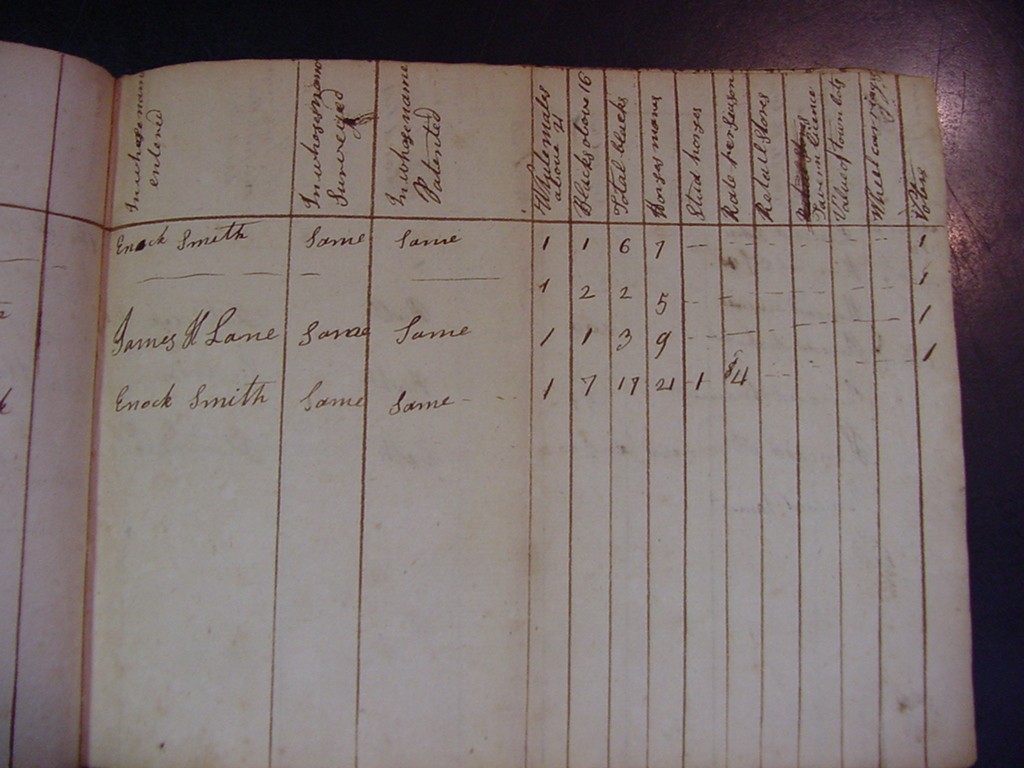 In whose name entered
In whose name Surveyed
In whose name Patented
White males above 21
Blacks above 16
Total blacks
Horses mares
Stud horses
Rate per Season
Retail Stores
Tavern licence
Value of town lots
Wheel carriages
Voters
Enock Smith Same Same 1 1 6 7 - - - - - - - 1
— — — 1 2 2 5 - - - - - - - 1
James H Lane Same Same 1 1 3 9 - - - - - - - 1
Enock Smith Same Same - - 1 7 17 21 1 $4 - - - - - 1